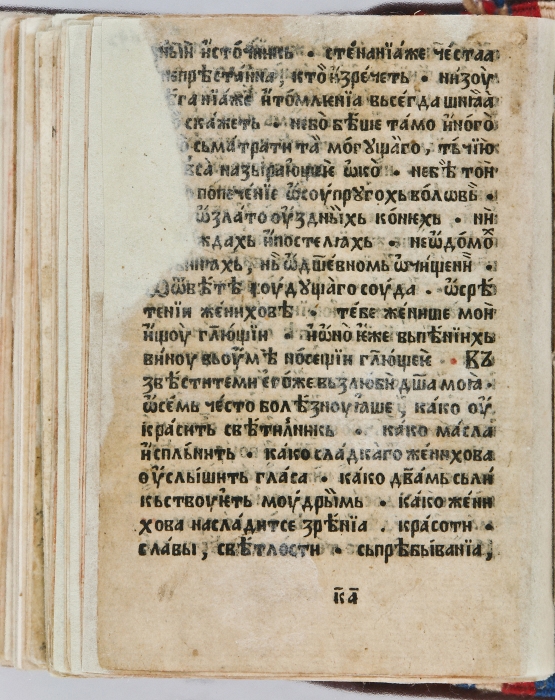 ны́й и҆сто́чникь • сте́нанїа́же че́стаа
непрѣста́нна, кто̀ и҆зре́четь • низоу
га нїа́же и҆томле́нїа вьсе́гда
ска́жеть • не́бо бѣ́ше та́мо и҆но́го
сьма́трати та мо́гꙋщаго, ты́чїю
вса назыра́ющее ѡ҆́ко • не́бѣ то́н
попече́нїе ѡ҆соупрꙋ́гохь во́ловь •
ѡ҆зла́то оу҆́здны́ихь ко́нехь • ни
ждахь и҆посте́лꙗхь • неѡ҆до́мо
нь ѡ҆дш҃е́вномь ѡ҆чище́нїи •
ѡ҆ѿвѣ́тѣ боудꙋ́щаго соу́да • ѡ҆срѣ́
те́нїи же́ниховѣ • те́бе же́нише мои
и҆щоу гл҃ющїи • и҆ѡ҆но є҆́же вьпѣ́нїихь
ви́ноу вьоу҆́мѣ но́сещїи гл҃ю́щеѥ • Въ
звѣ́стите́ми е҆го́же вьзлю́би дш҃а моꙗ̀ •
ѡ҆се́мь че́сто болѣ́зноуꙗше, ка́ко оу҆
кра́сить свѣти́лникь • ка́ко ма́сла
и҆спль́нить • ка́ко сла́дкаго же́нихова
оу҆слы́шить гла́са • ка́ко дв҃а́мь сьли
кьствоу́ѥть моу́дрымь • ка́ко же́ни
хова насла́дитсе зрѣ́нїа • красоти •
сла́вы, свѣ́тлости • сьпрѣбы́ванїа,
к҃а